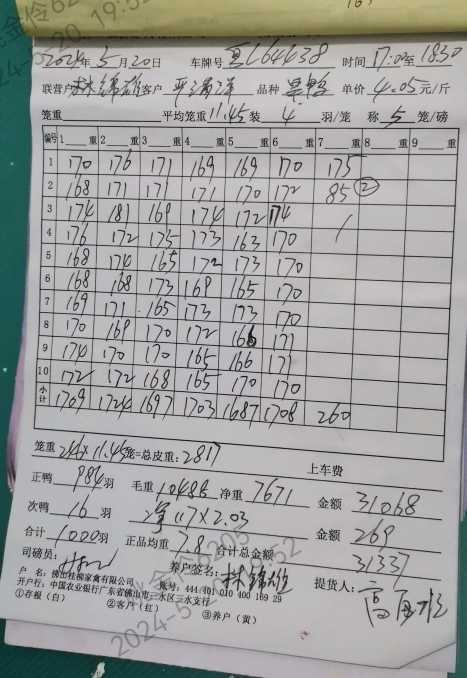 2024年5月20日 车牌号 L64438 时间 17:00至18:30
联营户 林锦雄 客户 品种 单价 4.05元/斤
笼重 平均笼重 11.45 装 4 羽/笼 称 5 笼/磅
编号 1 重 2 重 3 重 4 重 5 重 6 重 7 重 8 重 9 重
1 170 176 171 169 169 170 175
2 168 171 171 171 170 172 85 ②
3 174 181 169 174 172 174 /
4 176 172 175 173 163 170
5 168 174 165 172 173 170
6 168 168 173 169 165 170
7 169 171 165 173 173 170
8 170 169 170 172 166 171
9 174 170 170 165 166 171
10 172 172 168 165 170 170
小计 1709 1724 1697 1703 1687 1708 260
笼重 246×11.45 笼=总皮重: 2817
上车费
正鸭 984 羽 毛重 10488 净重 7671 金额 31068
次鸭 16 羽 117×2.03 金额 269
合计 1000 羽 正品均重 7.8 合计总金额 31337
司磅员: 养户签名: 林锦雄 提货人:
户 名: 佛山桂柳家禽有限公司
开户行: 中国农业银行广东省佛山市三水区三水支行 账号: 444/401 010 400 169 29
①存根(白) ②客户(红) ③养户(黄)